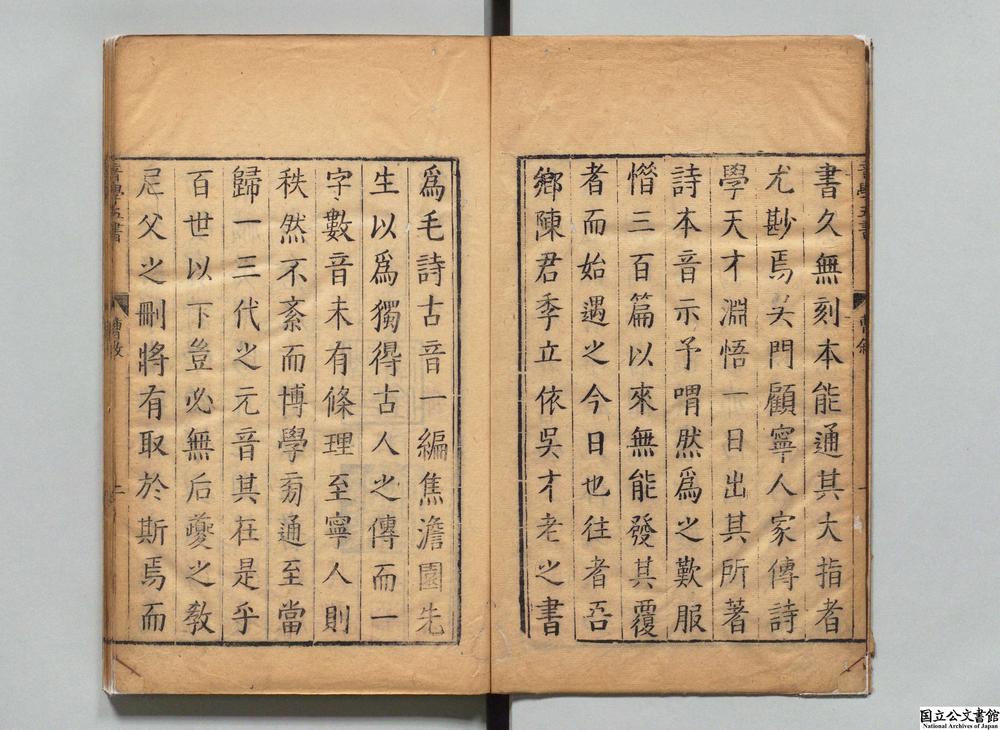 書久無刻本能通其大指者
尤尠焉吳門顧寧人家傳詩
學天才淵悟一日出其所著
詩本音示予喟然爲之歎服
憯三百篇以來無能發其覆
者而始遇之今日也往者吾
鄉陳君季立依吳才老之書
爲毛詩古音一編焦澹園先
生以爲獨得古人之傳而一
字數音未有條理至寧人則
秩然不紊而博學旁通至當
歸一三代之元音其在是乎
百世以下豈必無后夔之教
尼父之刪將有取於斯焉而
音學五書
曹敘
二
国立公文書館
National Archives of Japan